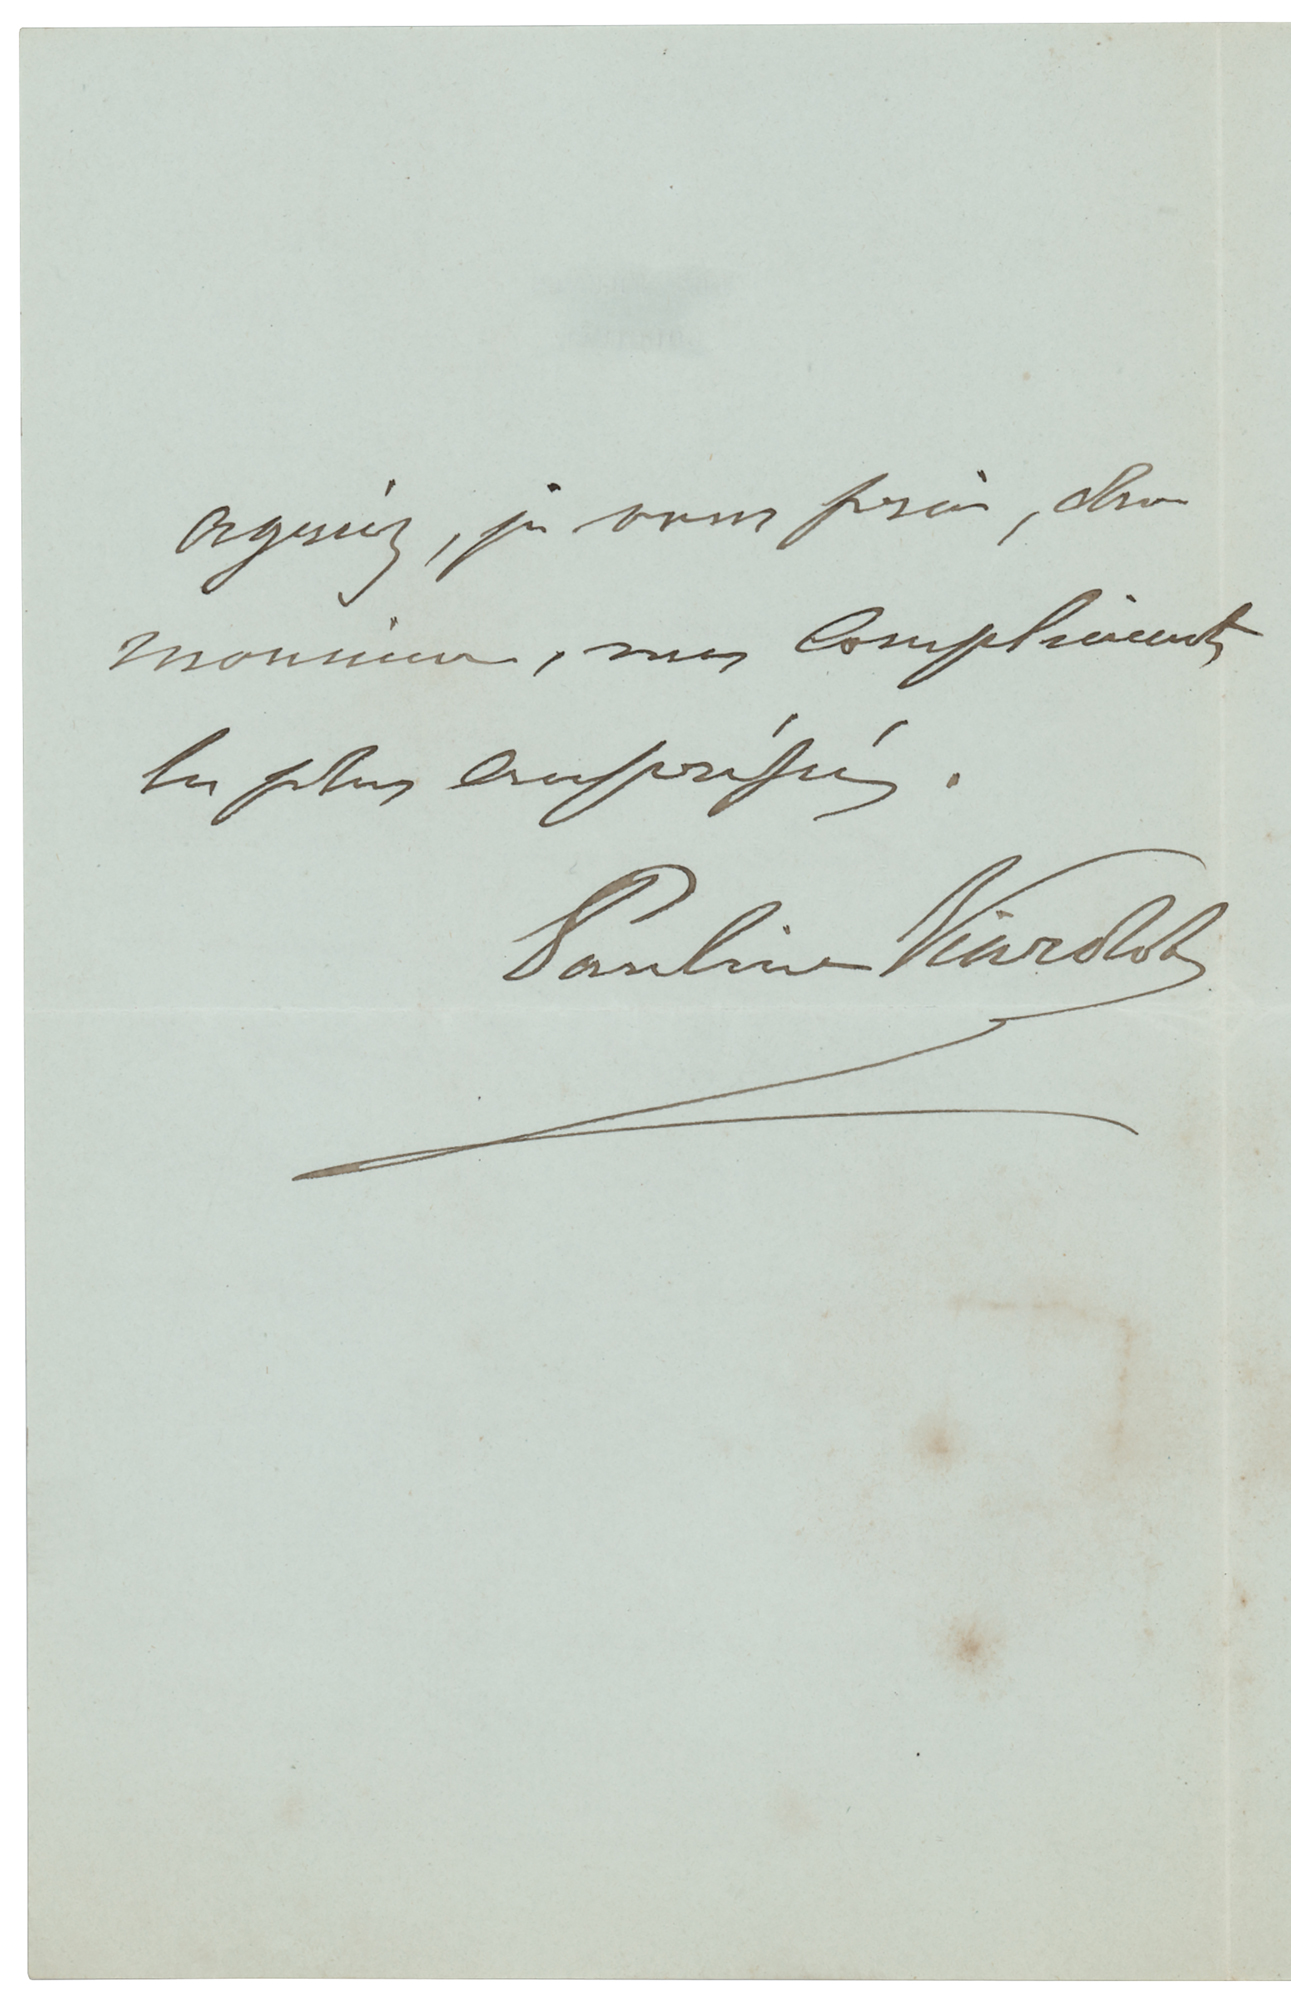 agréez, je vous prie, cher
monsieur, mes compliments
les plus empressés.
Pauline Viardot